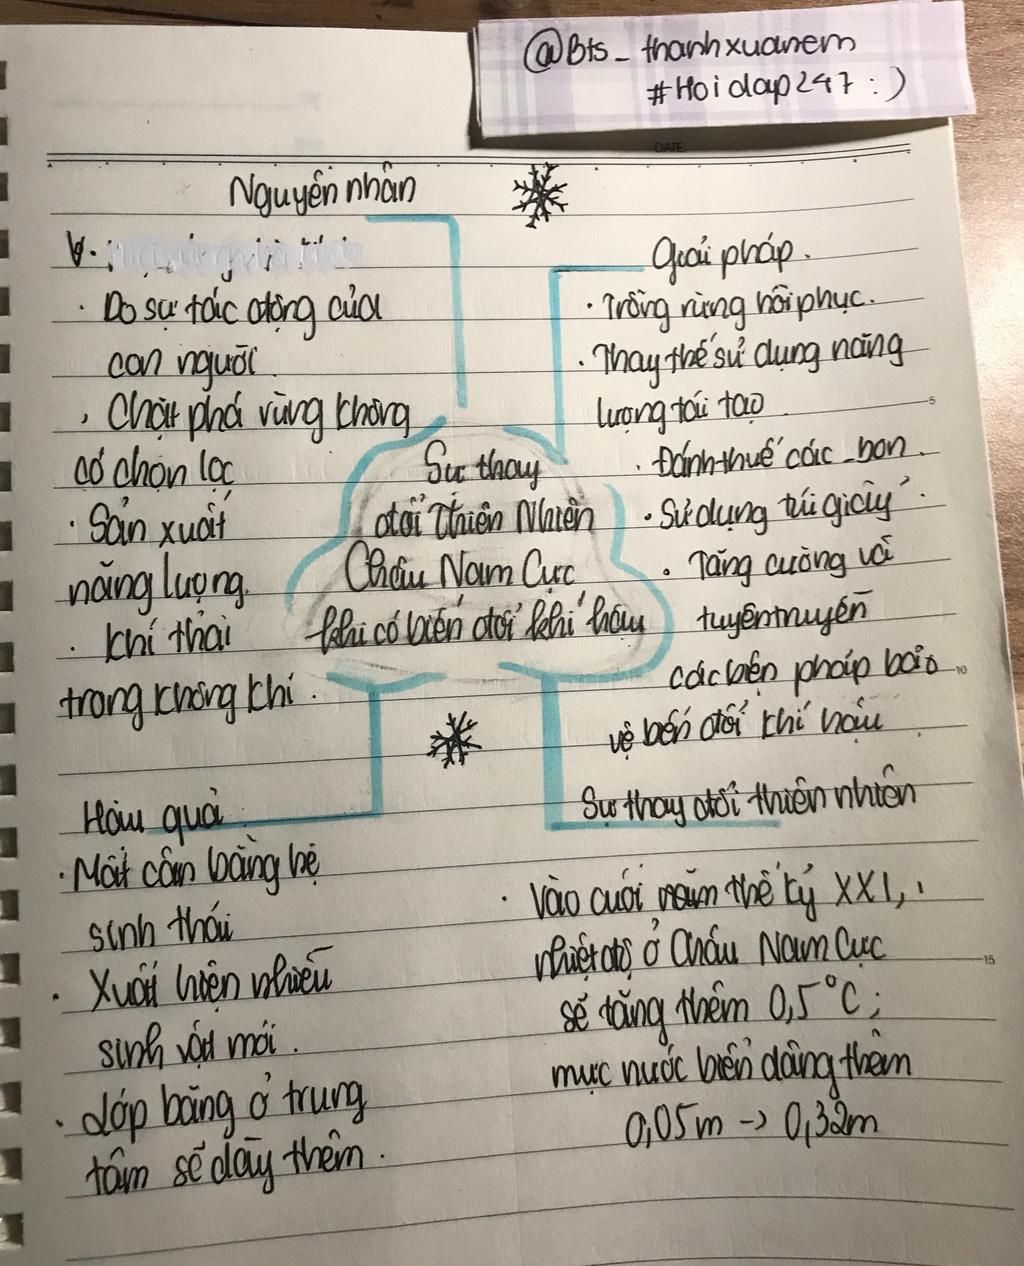 @Bts_thanhxuanem
#Hoidap247 :)
DATE
Nguyên nhân
· Do sự tác động của
con người
, Chặt phá rừng không
có chọn lọc
· Sản xuất
năng lượng
· khí thải
trong không khí.
Giải pháp.
· Trồng rừng hồi phục.
· Thay thế sử dụng năng
lượng tái tạo
5
· Đánh thuế các_bon.
· Sử dụng túi giấy.
· Tăng cường và
tuyên truyền
các biện pháp bảo
10
vệ biến đổi khí hậu
Sự thay
đổi Thiên Nhiên
Châu Nam Cực
khi có biến đổi khí hậu
Hậu quả
· Mất cân bằng hệ
sinh thái
· Xuất hiện nhiều
sinh vật mới.
· Lớp băng ở trung
tâm sẽ dày thêm.
Sự thay đổi thiên nhiên
· Vào cuối năm thế kỷ XXI,
nhiệt độ ở Châu Nam Cực
15
sẽ tăng thêm 0,5°C;
mực nước biển dâng thêm
0,05m -> 0,32m